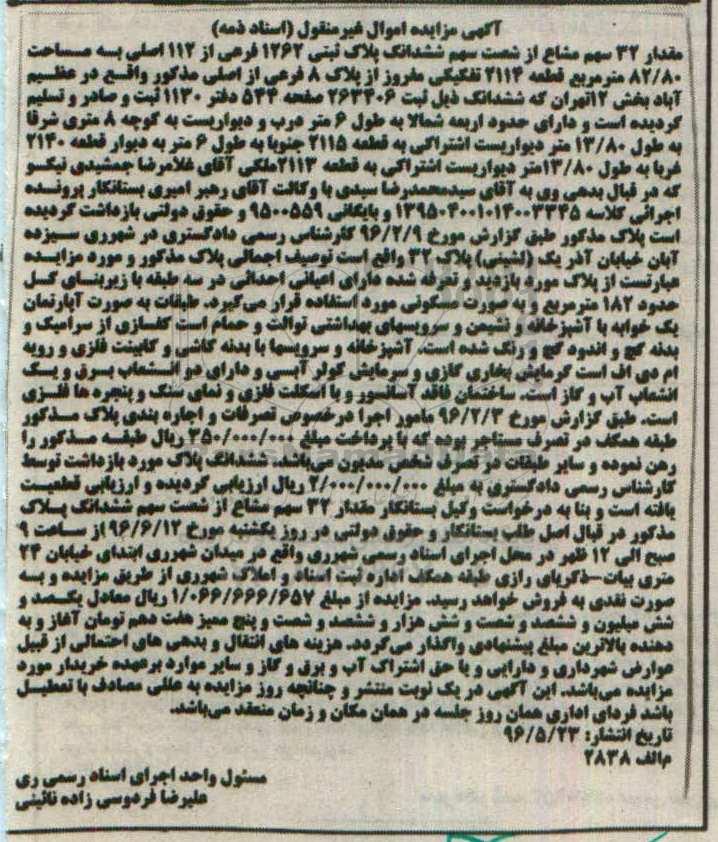 آگهی مزایده اموال غیرمنقول (اسناد ذمه)
مقدار ۳۲ سهم مشاع از شصت سهم ششدانگ پلاک ثبتی ۱۲۶۲ فرعی از ۱۱۲ اصلی به مساحت
۸۲/۸۰ مترمربع قطعه ۲۱۱۴ تفکیکی مفروز از پلاک ۸ فرعی از اصلی مذکور واقع در عظیم
آباد بخش ۱۲تهران که ششدانگ ذیل ثبت ۲۶۳۴۰۶ صفحه ۵۴۴ دفتر ۱۱۳۰ ثبت و صادر و تسلیم
گردیده است و دارای حدود اربعه شمالا به طول ۶ متر درب و دیواریست به کوچه ۸ متری شرقا
به طول ۱۳/۸۰ متر دیواریست اشتراکی به قطعه ۲۱۱۵ جنوبا به طول ۶ متر به دیوار قطعه ۲۱۴۰
غربا به طول ۱۳/۸۰متر دیواریست اشتراکی به قطعه ۲۱۱۳ملکی آقای غلامرضا جمشیدی نیکو
که در قبال بدهی وی به آقای سیدمحمدرضا سیدی با وکالت آقای رهبر امیری بستانکار پرونده
اجرائی کلاسه ۱۳۹۵۰۴۰۰۱۰۱۴۰۰۳۳۴۵ و بایگانی ۹۵۰۰۵۵۹ و حقوق دولتی بازداشت گردیده
است پلاک مذکور طبق گزارش مورخ ۹۶/۲/۹ کارشناس رسمی دادگستری در شهرری سیزده
آبان خیابان آذر یک (لشینی) پلاک ۳۲ واقع است توصیف اجمالی پلاک مذکور و مورد مزایده
عبارتست از پلاک مورد بازدید و تعرفه شده دارای اعیانی احداثی در سه طبقه با زیربنای کل
حدود ۱۸۲ مترمربع و به صورت مسکونی مورد استفاده قرار می‌گیرد. طبقات به صورت آپارتمان
یک خوابه با آشپزخانه و نشیمن و سرویسهای بهداشتی توالت و حمام است کفسازی از سرامیک و
بدنه گچ و اندود گچ و رنگ شده است. آشپزخانه و سرویسها با بدنه کاشی و کابینت فلزی و رویه
ام دی اف است گرمایش بخاری گازی و سرمایش کولر آبی و دارای دو انشعاب برق و یک
انشعاب آب و گاز است. ساختمان فاقد آسانسور و با اسکلت فلزی و نمای سنگ و پنجره ها فلزی
است. طبق گزارش مورخ ۹۶/۲/۳ مامور اجرا درخصوص تصرفات و اجاره بندی پلاک مذکور
طبقه همکف در تصرف مستاجر بوده که با پرداخت مبلغ ۲۵۰/۰۰۰/۰۰۰ ریال طبقه مذکور را
رهن نموده و سایر طبقات در تصرف شخص مدیون می‌باشد. ششدانگ پلاک مورد بازداشت توسط
کارشناس رسمی دادگستری به مبلغ ۲/۰۰۰/۰۰۰/۰۰۰ ریال ارزیابی گردیده و ارزیابی قطعیت
یافته است و بنا به درخواست وکیل بستانکار مقدار ۳۲ سهم مشاع از شصت سهم ششدانگ پلاک
مذکور در قبال اصل طلب بستانکار و حقوق دولتی در روز یکشنبه مورخ ۹۶/۶/۱۲ از ساعت ۹
صبح الی ۱۲ ظهر در محل اجرای اسناد رسمی شهرری واقع در میدان شهرری ابتدای خیابان ۲۴
متری بیات-ذکریای رازی طبقه همکف اداره ثبت اسناد و املاک شهرری از طریق مزایده و به
صورت نقدی به فروش خواهد رسید. مزایده از مبلغ ۱/۰۶۶/۶۶۶/۶۵۷ ریال معادل یکصد و
شش میلیون و ششصد و شصت و شش هزار و ششصد و شصت و پنج ممیز هفت دهم تومان آغاز و به
دهنده بالاترین مبلغ پیشنهادی واگذار می‌گردد. هزینه های انتقال و بدهی های احتمالی از قبیل
عوارض شهرداری و دارایی و یا حق اشتراک آب و برق و گاز و سایر موارد برعهده خریدار مورد
مزایده می‌باشد. این آگهی در یک نوبت منتشر و چنانچه روز مزایده به عللی مصادف با تعطیل
باشد فردای اداری همان روز جلسه در همان مکان و زمان منعقد می‌باشد.
تاریخ انتشار: ۹۶/۵/۲۳
م‌الف ۲۸۳۸
مسئول واحد اجرای اسناد رسمی ری
علیرضا فردوسی زاده نائینی